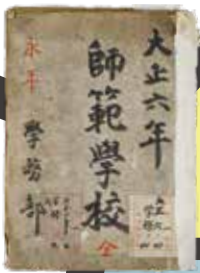 大正六年
師範學校
全
永年
學務部